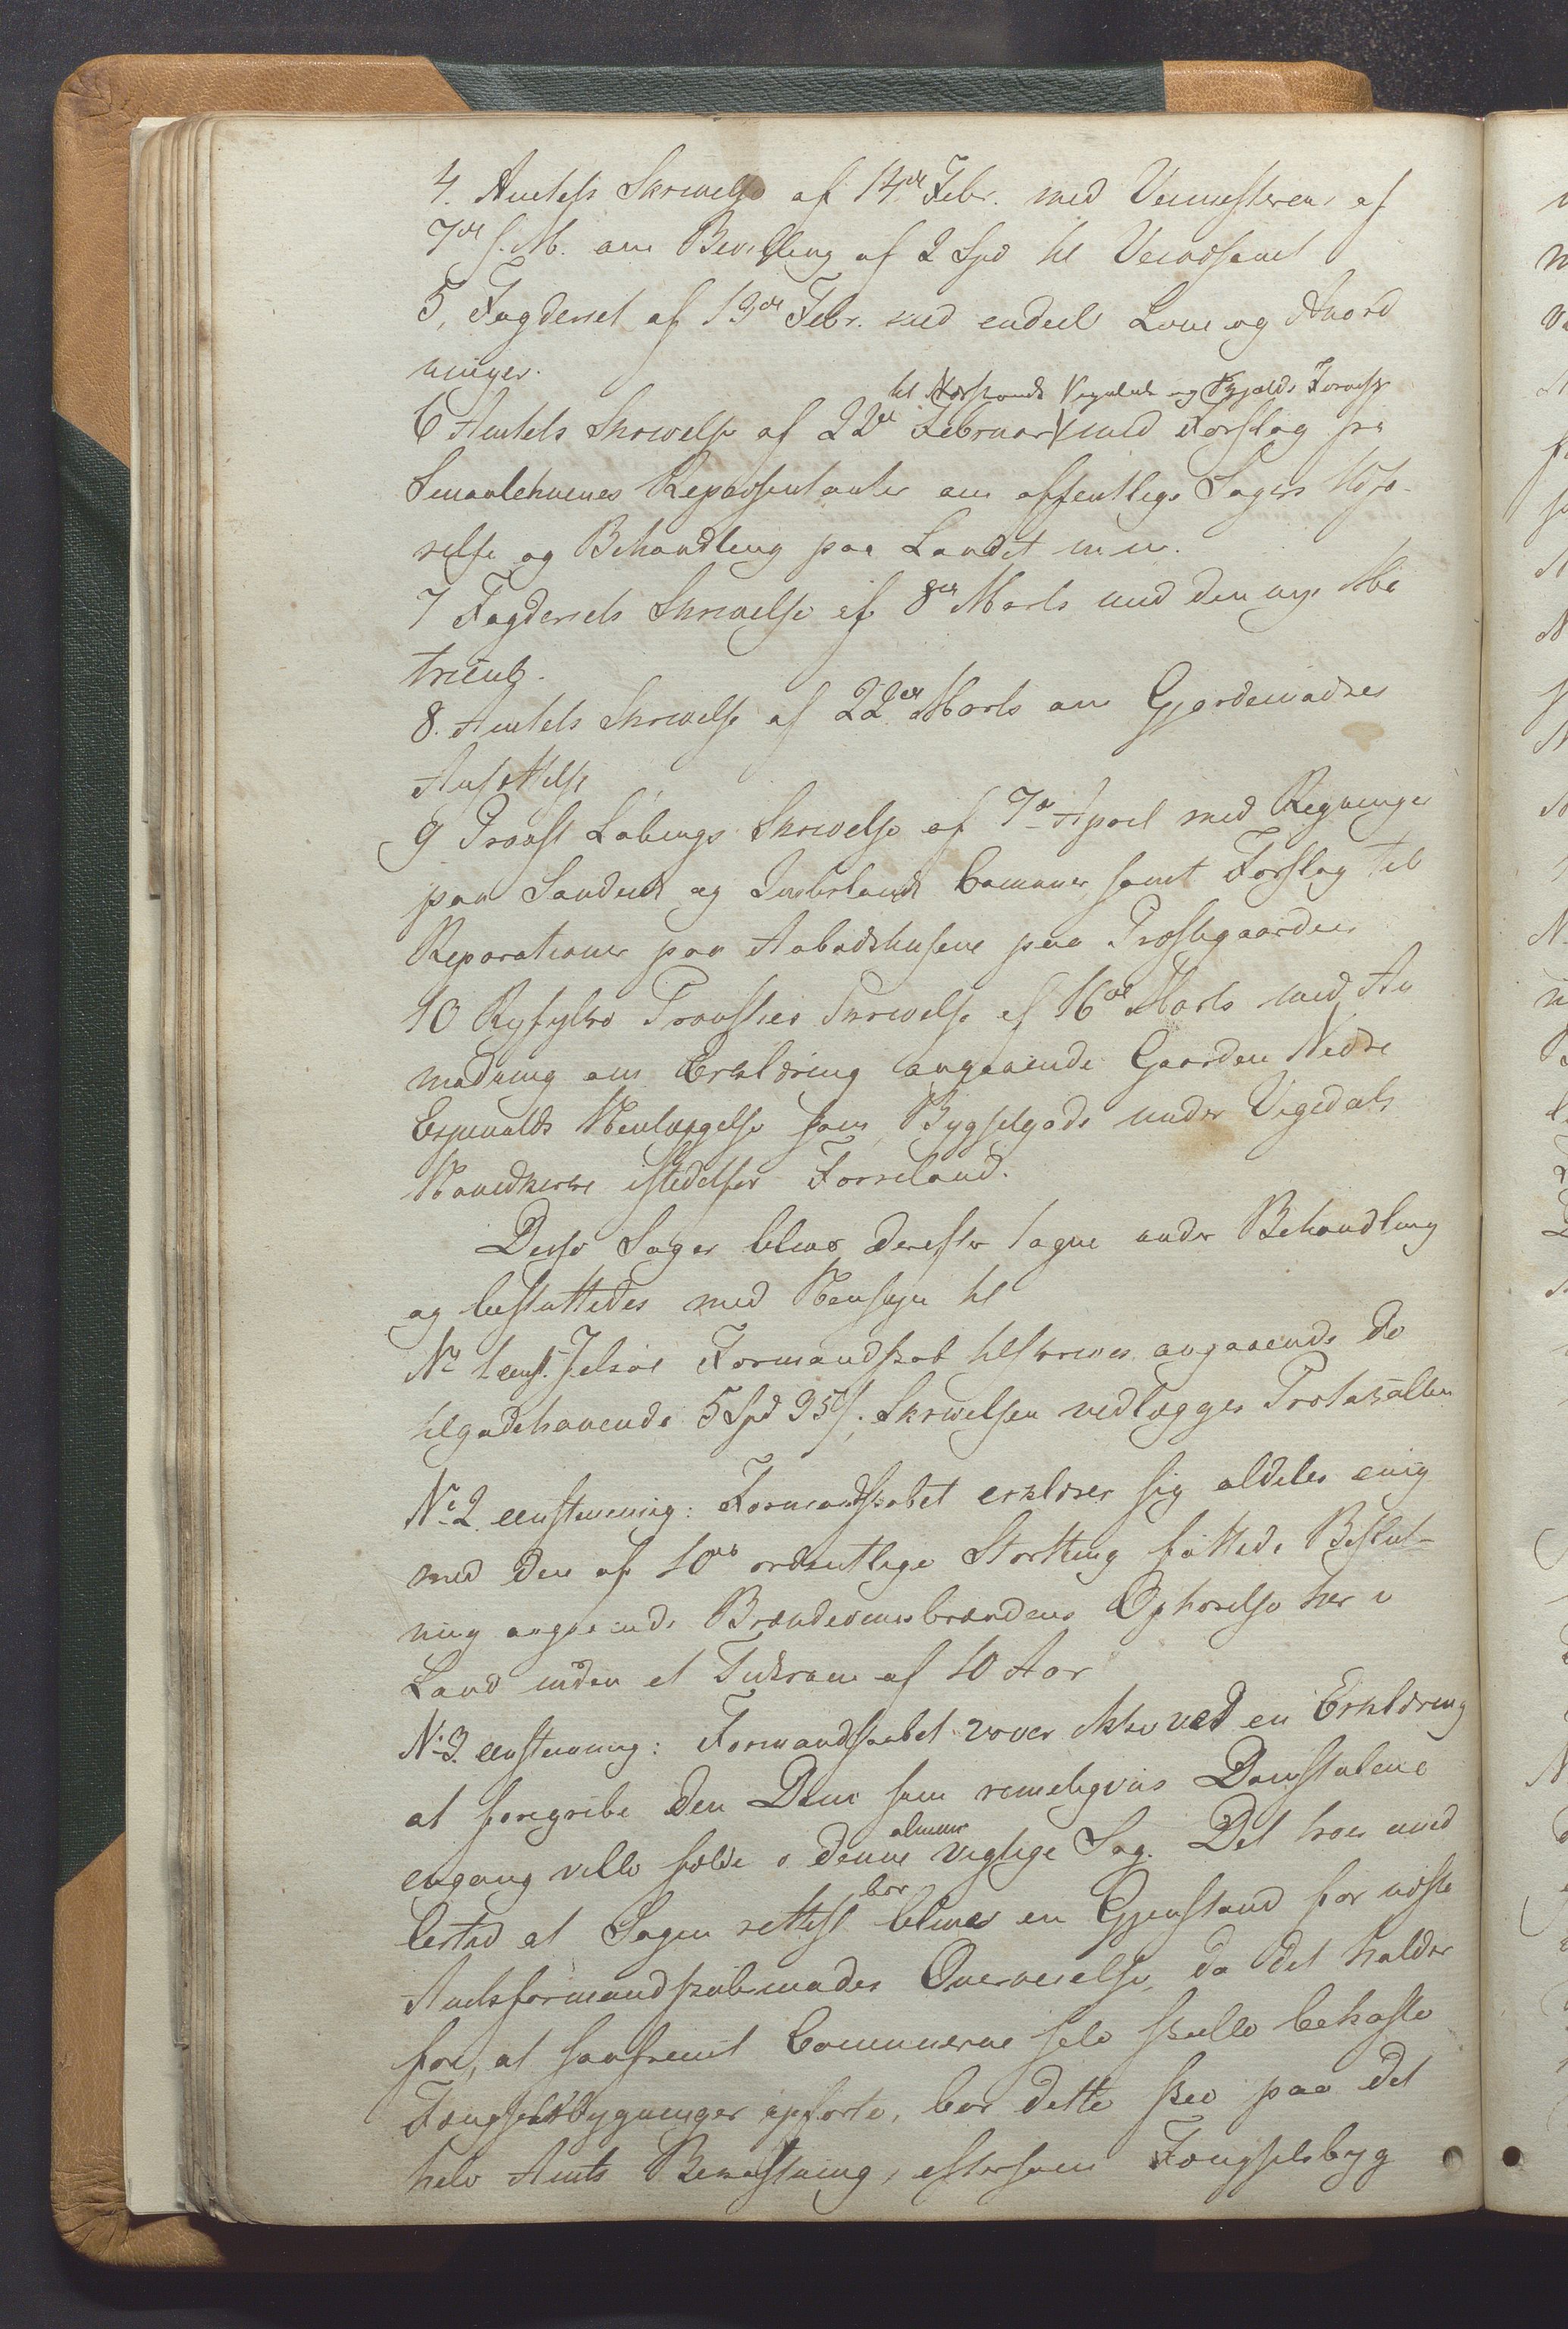 4. Amtets Skrivelse af 14de Febr. med Veimesterens af
7de s. M. om Bevilling af 2 Spd til
5, Fogderiet af 13de Febr. med endeel Love og Anord
ninger.
til Vigedals og Formsk
6 Amtets Skrivelse af 22de Februar med Forslag fra
Smaalehnenes Repræsentanter om offentlige Sagers
relse og Behandling paa Landet m m.
7 Fogderiets Skrivelse af 8de Marts med den nye Ma
tricul.
8. Amtets Skrivelse af 22de Marts om Gjordemødres
Ansættelse
9 Provst Løbergs Skrivelse af 7de April med Regninger
paa Sandeids og Imslands Communer samt Forslag til
Reparationer paa Aabodshusene paa Præstegaarden
10 Ryfylke Provsties Skrivelse af 16de Marts med An
modning om Erklæring angaaende Gaarden Nedre
Espevolds Henlæggelse som Bygselgods under Vigedals
Hovedkirke istedetfor Forreland.
Disse Sager bleve derefter tagne under Behandling
og besluttedes med Hensyn til
No 1 eenst. Jelsøe Formandskab tilskrives angaaende de
tilgodehavende 5 Spd 95 s; Skrivelsen vedlægges Protokollen
No 2. eenstemmig: Formandskabet erklærer sig aldeles enig
med den af 10de ordentlige Storthing fattede Beslut-
ning angaaende Brændeviinsbrændens Ophørelse her i
Land inden et Tidsrum af 10 Aar
No 3. eenstemmig: Formandskabet vover ikke ved en Erklæring
at foregribe den Dom som rimeligviis Domstolene
engang ville fælde i denne almeen vigtige Sag. Det troer imid
lertid at Sagen rettest bør blive en Gjenstand for næste
Amtsformandskabsmødes Overveielse, da det holder
for, at saafremt Communerne selv skulle bekoste
Fængselsbygninger opførte, bør dette skee paa det
hele Amts Bekostning, eftersom Fængselsbyg